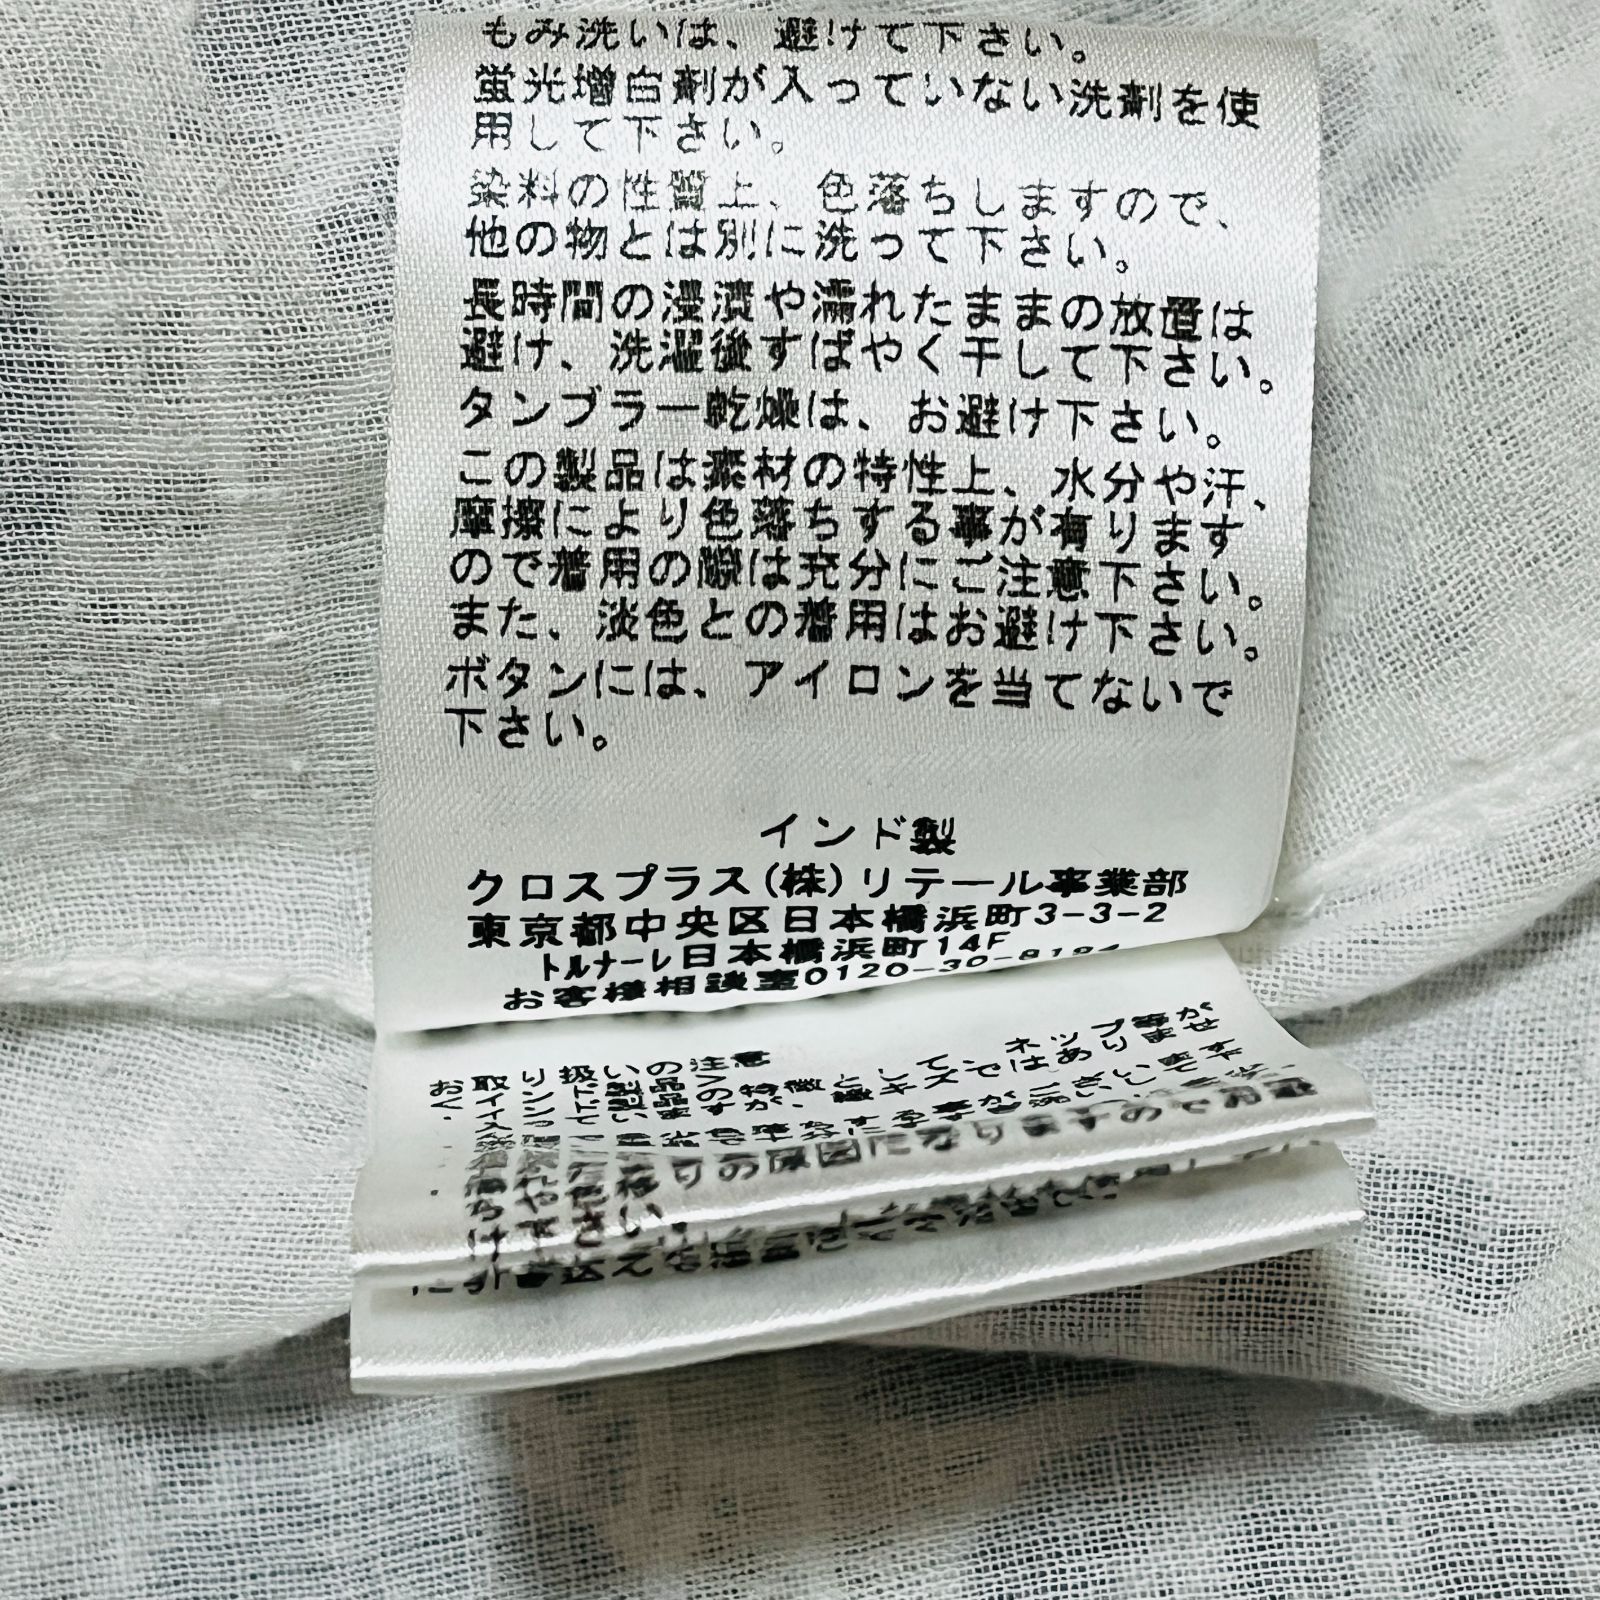 もみ洗いは、避けて下さい。
蛍光増白剤が入っていない洗剤を使
用して下さい。
染料の性質上、色落ちしますので、
他の物とは別に洗って下さい。
長時間の浸漬や濡れたままの放置は
避け、洗濯後すばやく干して下さい。
タンブラー乾燥は、お避け下さい。
この製品は素材の特性上、水分や汗、
摩擦により色落ちする事が有ります
ので着用の際は充分にご注意下さい。
また、淡色との着用はお避け下さい。
ボタンには、アイロンを当てないで
下さい。
インド製
クロスプラス(株)リテール事業部
東京都中央区日本橋浜町3-3-2
トルナーレ日本橋浜町14F
お客様相談室0120-30-8194
お取り扱いの注意
の原因になりますので
け下さい。